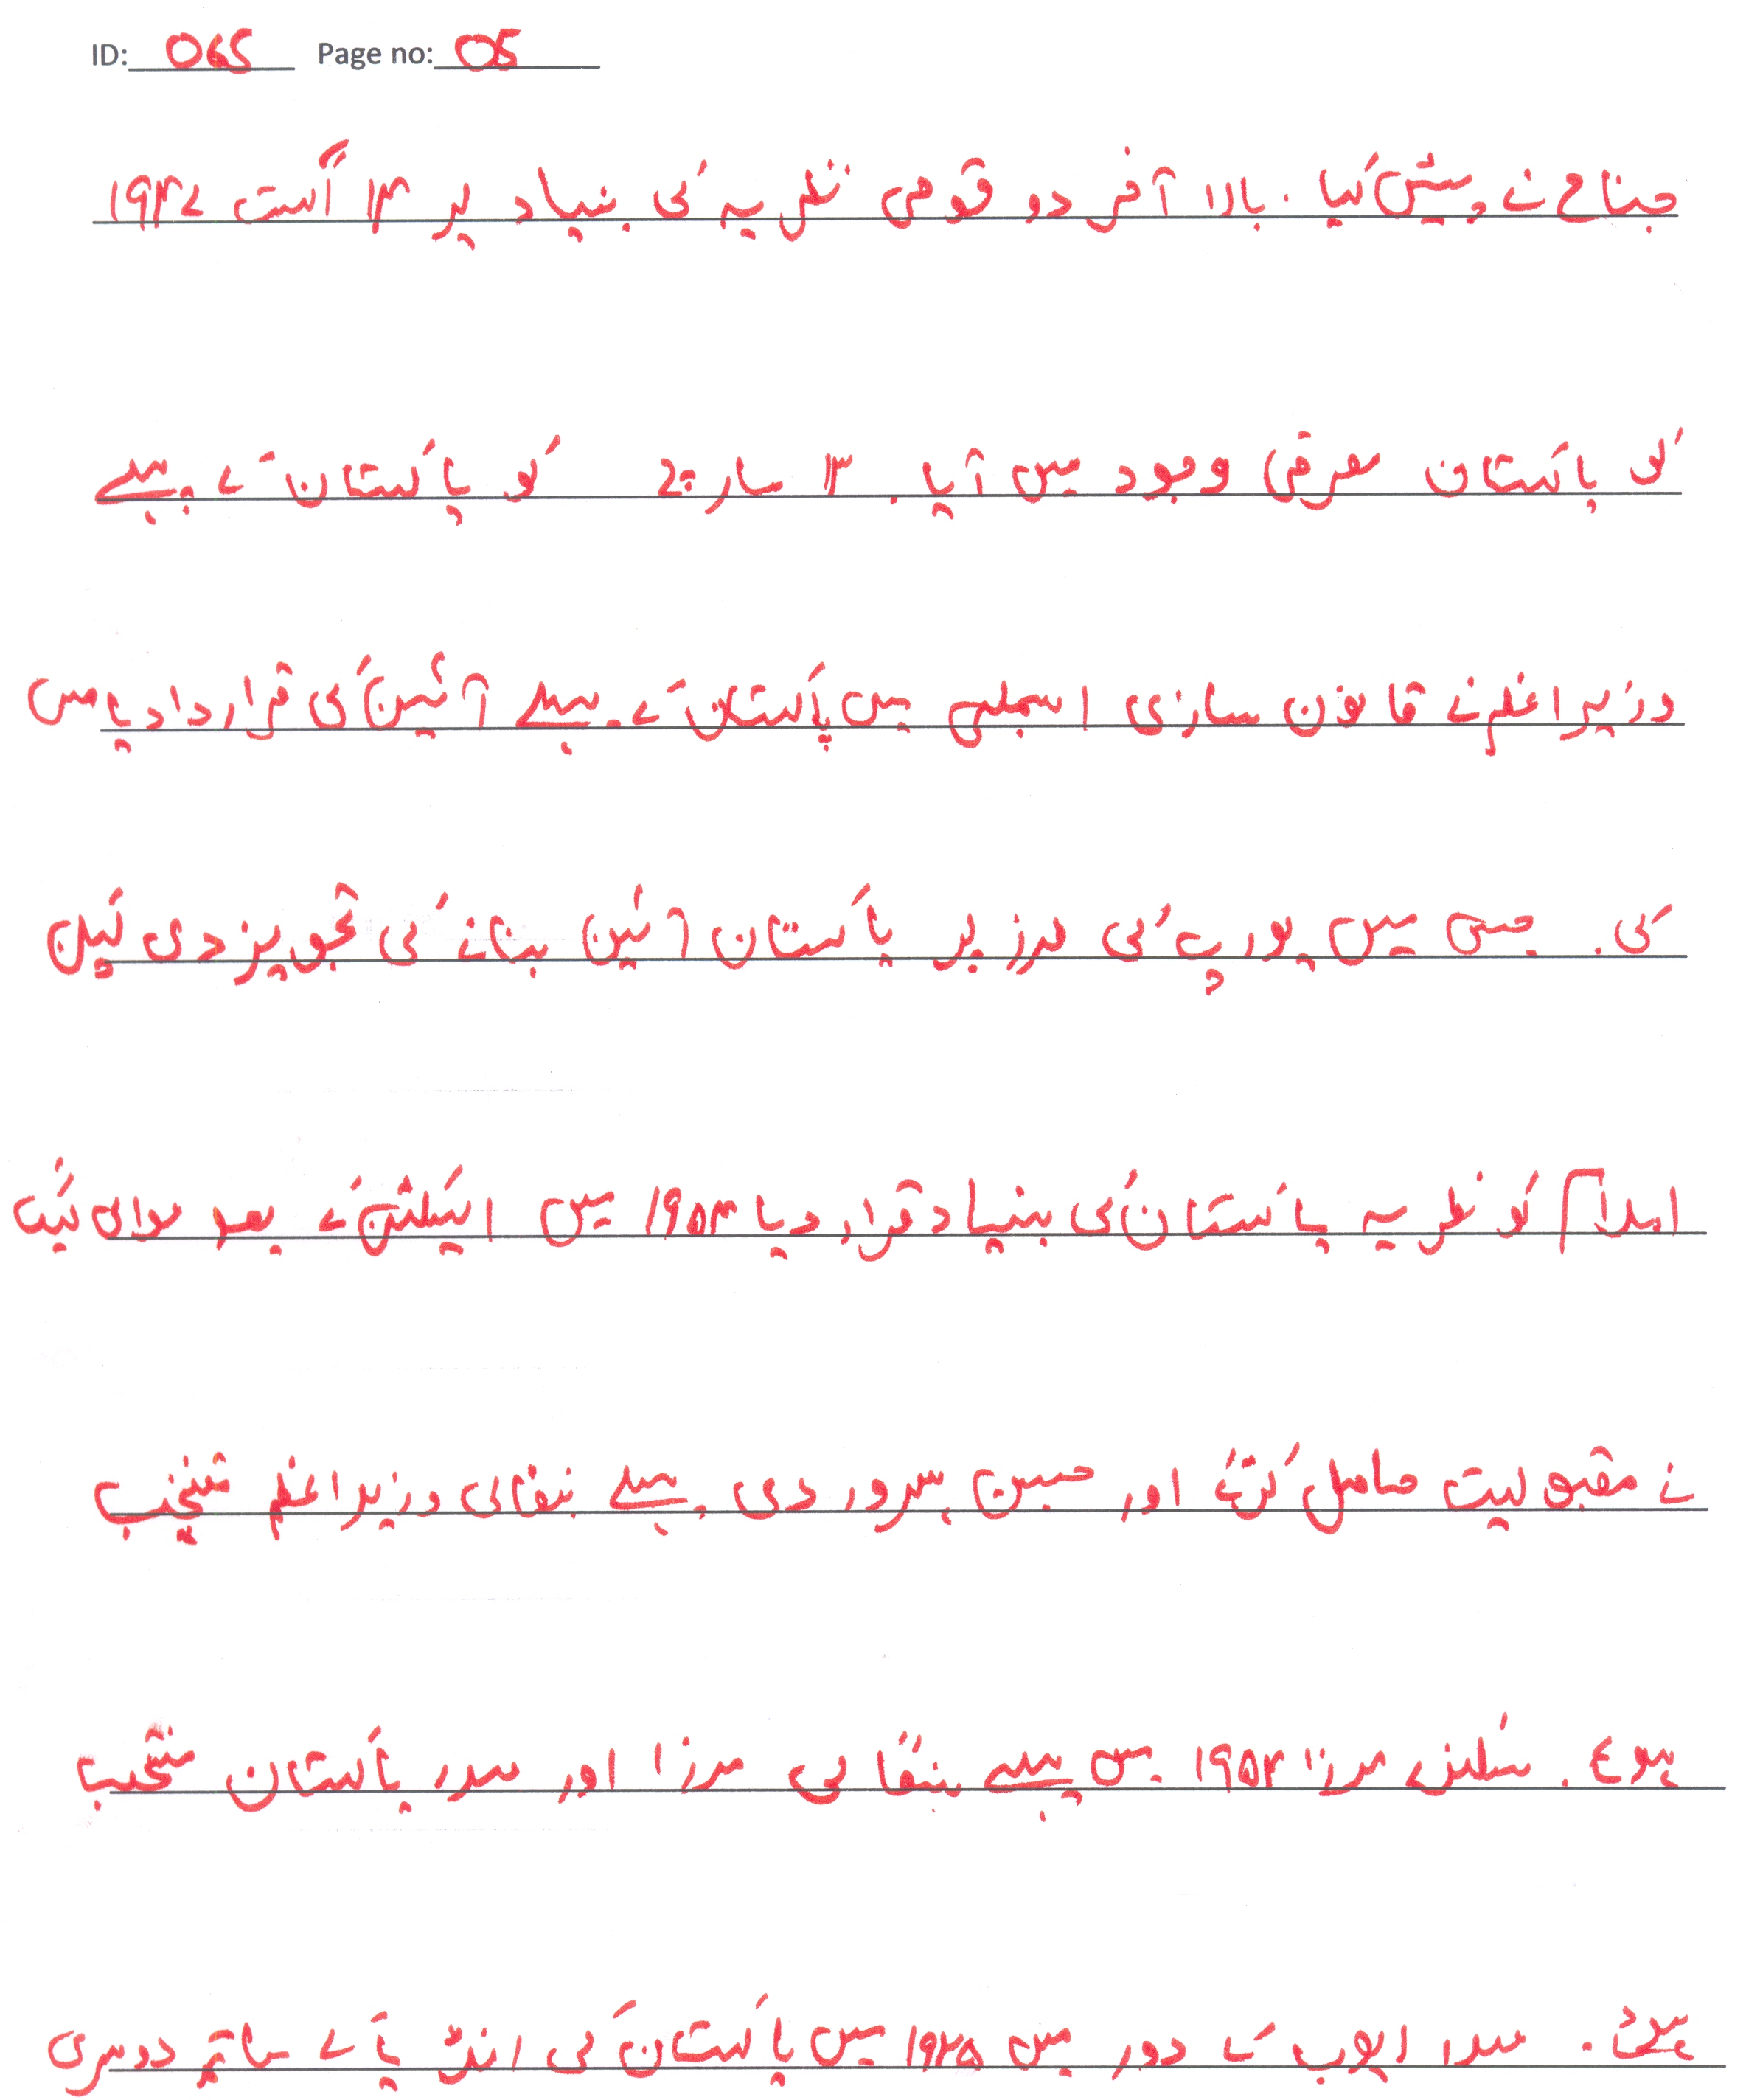 ID: 065 Page no: 05
جناح نے پیش کیا. بالا آخر دو قومی نظریہ کی بنیاد پر ۱۴ اگست ۱۹۴۷
کو پاکستان معرض وجود میں آیا. ۱۳ مارچ 2 کو پاکستان کے پہلے
وزیر اعظم نے قانون سازی اسمبلی میں پاکستان کے پہلے آئین کی قرارداد پاس
کی. جس میں یورپ کی طرز پر پاکستان آئین بنانے کی تجویز دی لیکن
اسلام کو نظریہ پاکستان کی بنیاد قرار دیا ۱۹۵۴ میں الیکشن کے بعد عوامی لیگ
نے مقبولیت حاصل کرگئے اور حسین سہروردی پہلے بنگالی وزیر اعظم منتخب
ہوئے. سکندر مرزا ۱۹۵۴ میں پہلے بنگالی مرزا اور صدر پاکستان منتخب
ہوئے. صدر ایوب کے دور میں ۱۹۶۵ میں پاکستان کی انڈیا کے ساتھ دوسری